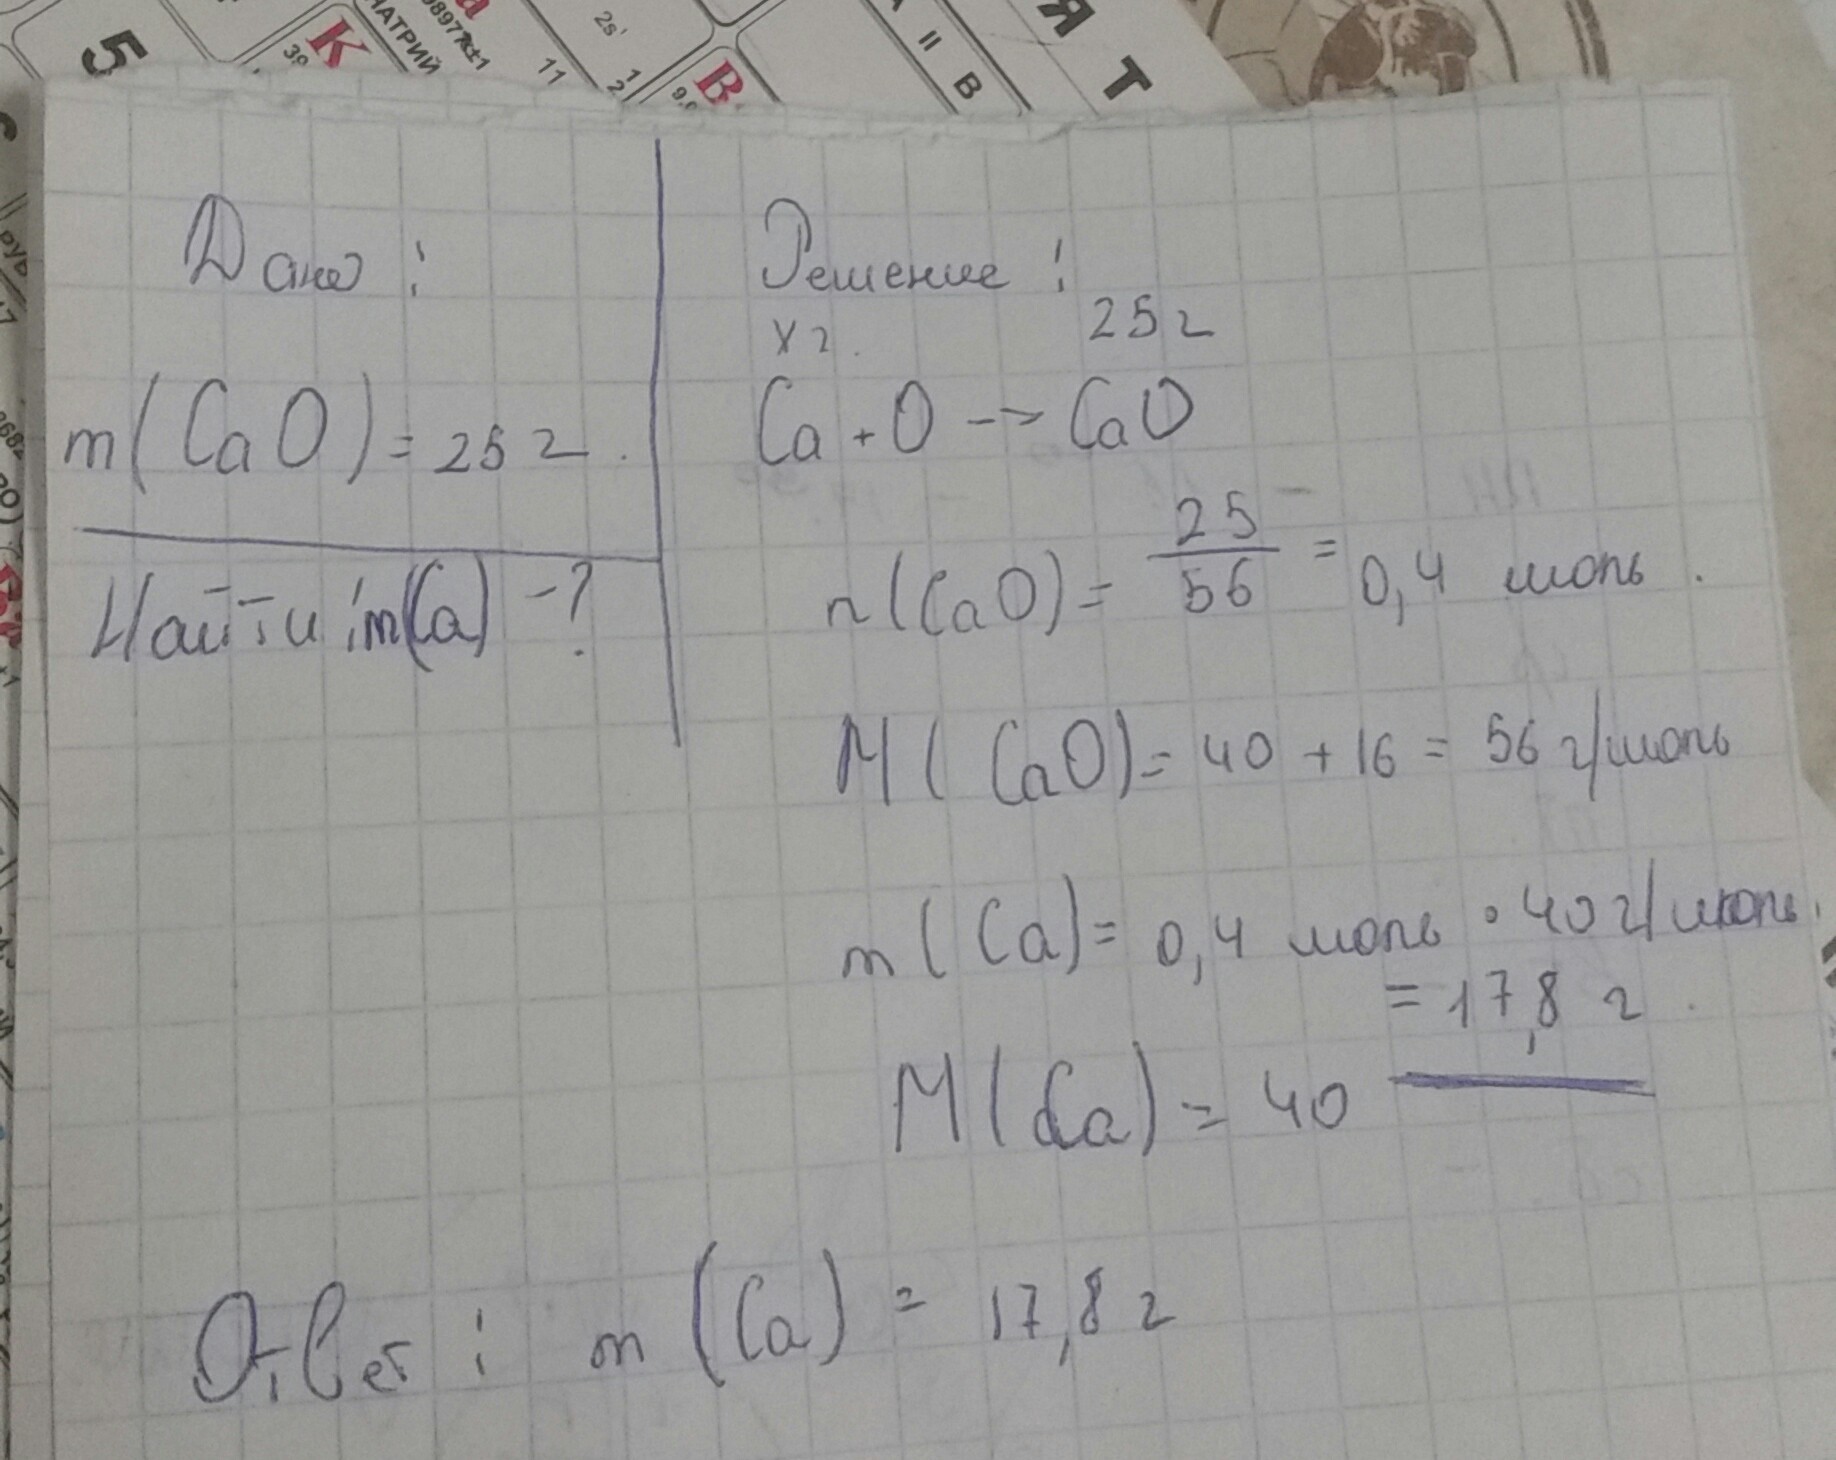 5
К
39
НАТРИЙ
11
2s¹
1
2
В
II
В
Я
Т
Дано:
m(CaO) = 25 г.
Найти: m(Ca) - ?
Решение:
X г. 25 г
Ca + O --> CaO
n(CaO) = 25/56 = 0,4 моль.
M(CaO) = 40 + 16 = 56 г/моль
m(Ca) = 0,4 моль • 40 г/моль.
= 17,8 г.
M(Ca) = 40
Ответ: m(Ca) = 17,8 г